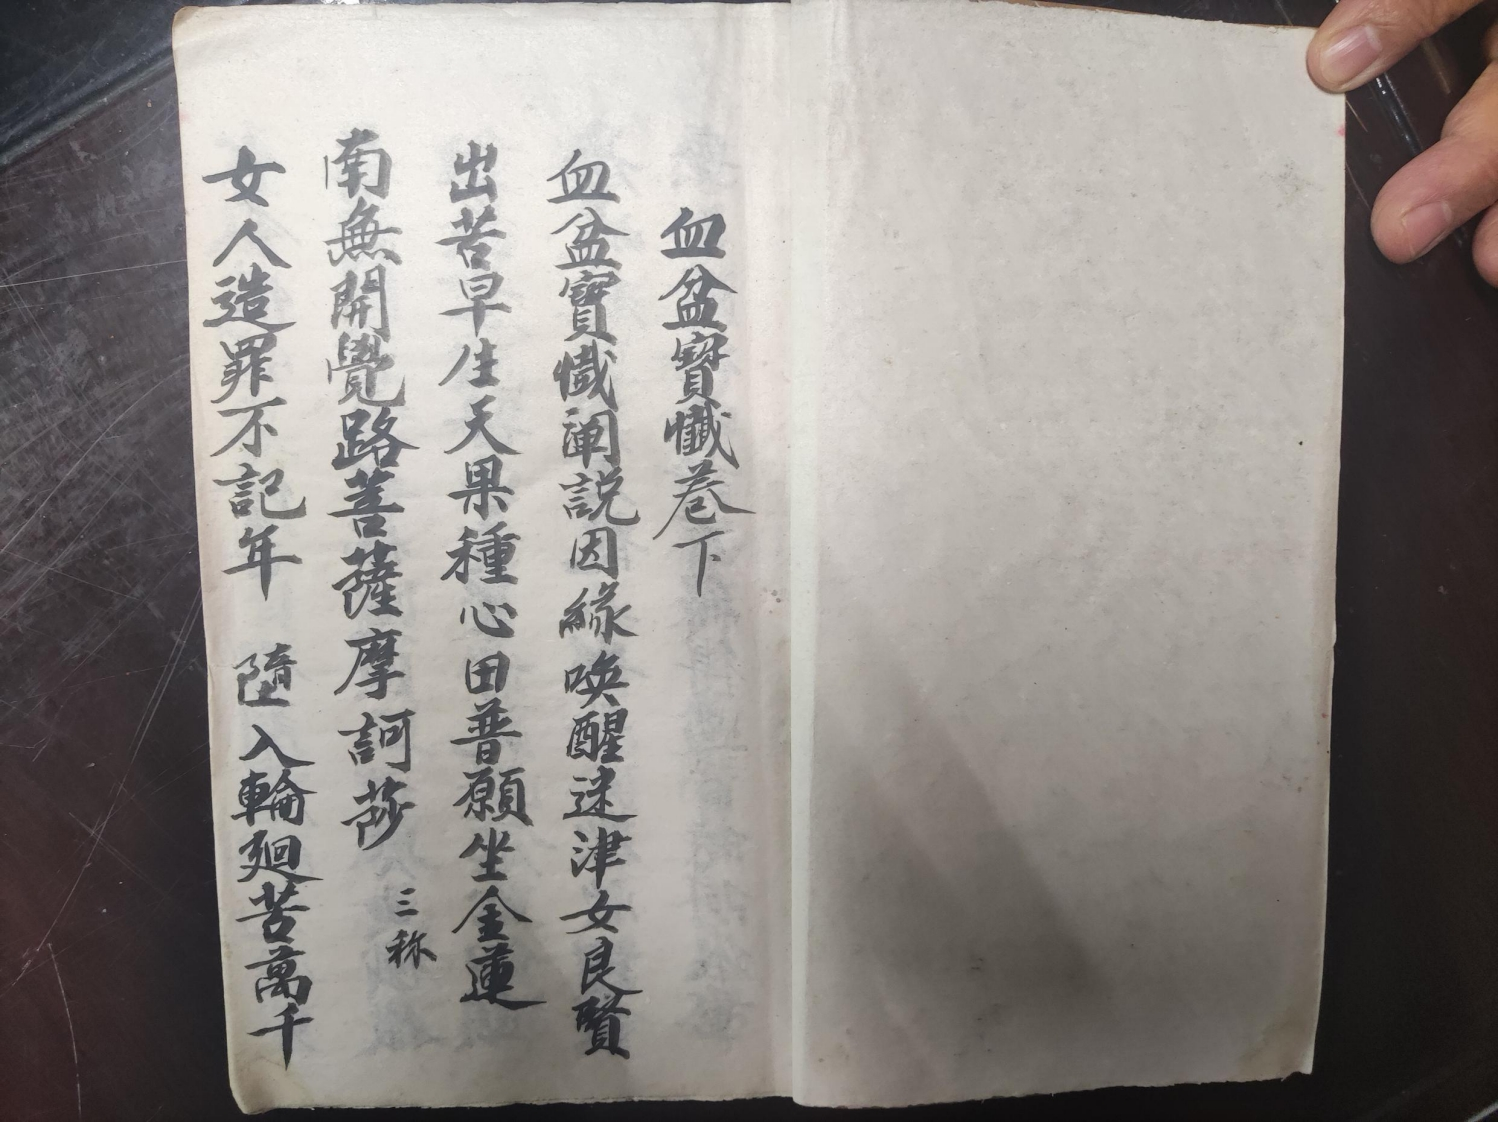 血盆寳懺巻下
血盆寳懺闡説因緣唤醒迷津女良賢
出苦早生天果種心田普願坐金蓮
南無開覺路菩薩摩訶莎 三称
女人造罪不記年 墮入輪廻苦萬千